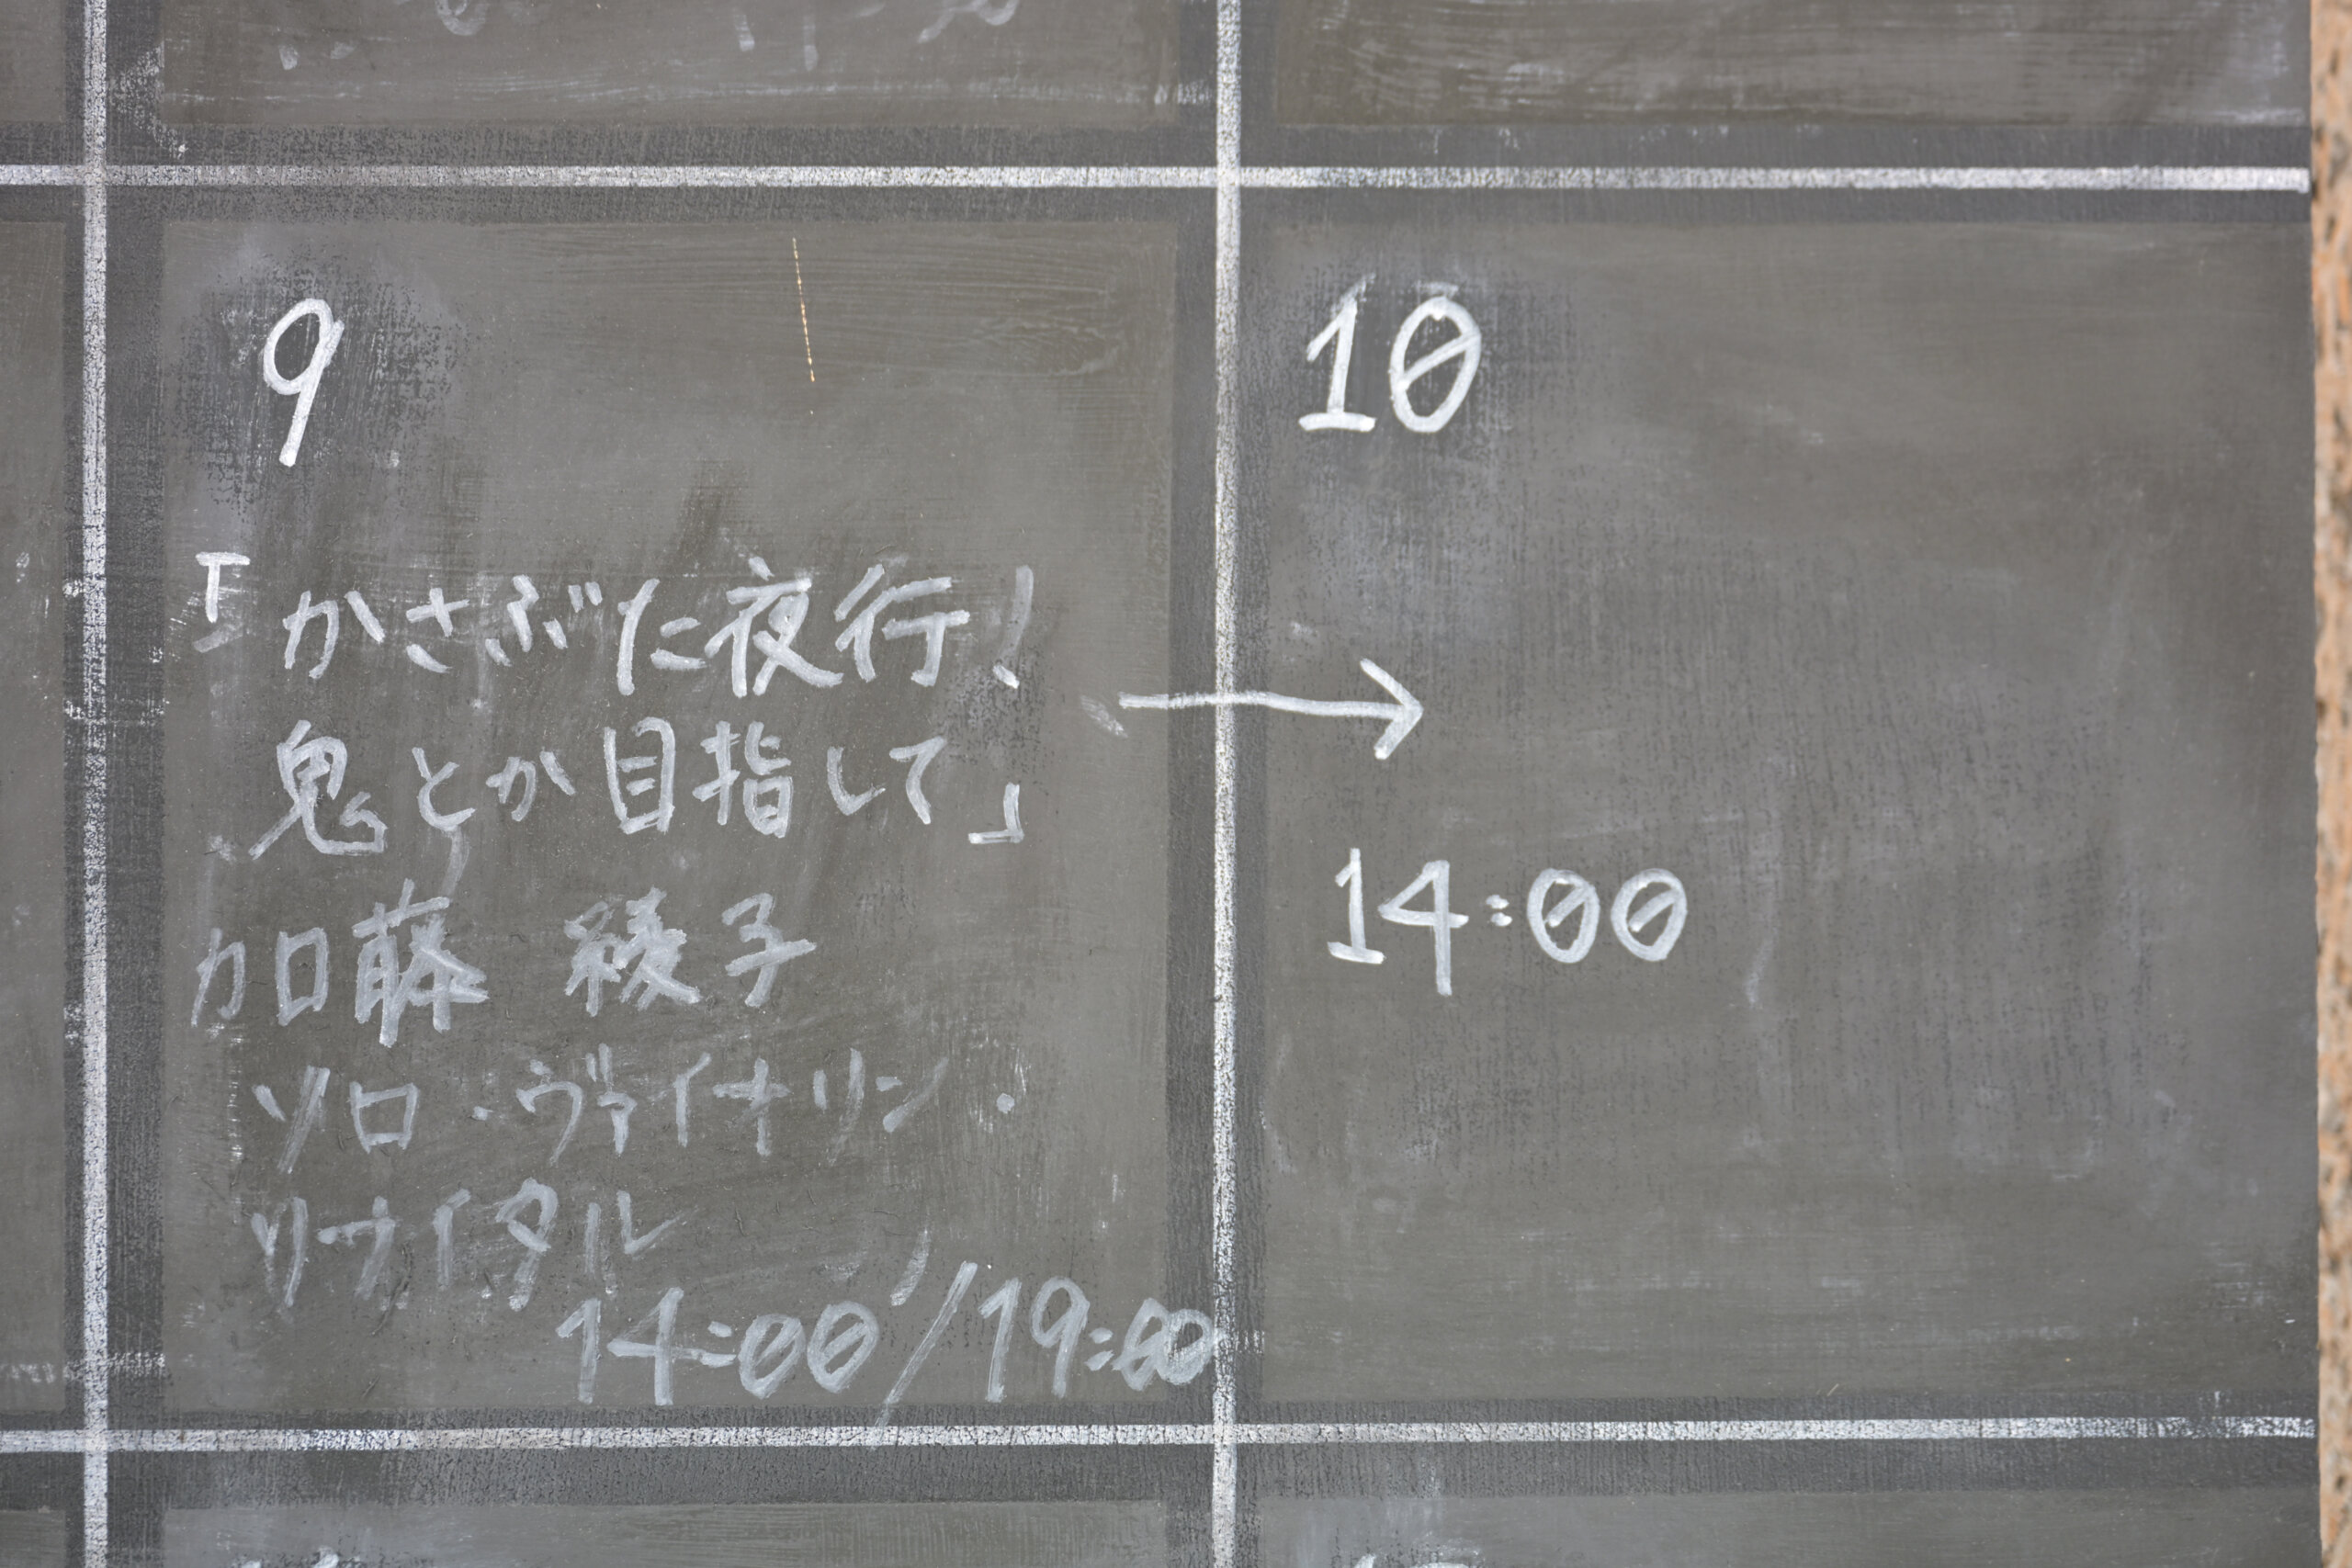 9
「かさぶた夜行!
鬼とか目指して」
加藤 綾子
ソロ・ヴァイオリン・
リサイタル
14:00/19:00
10
→
14:00